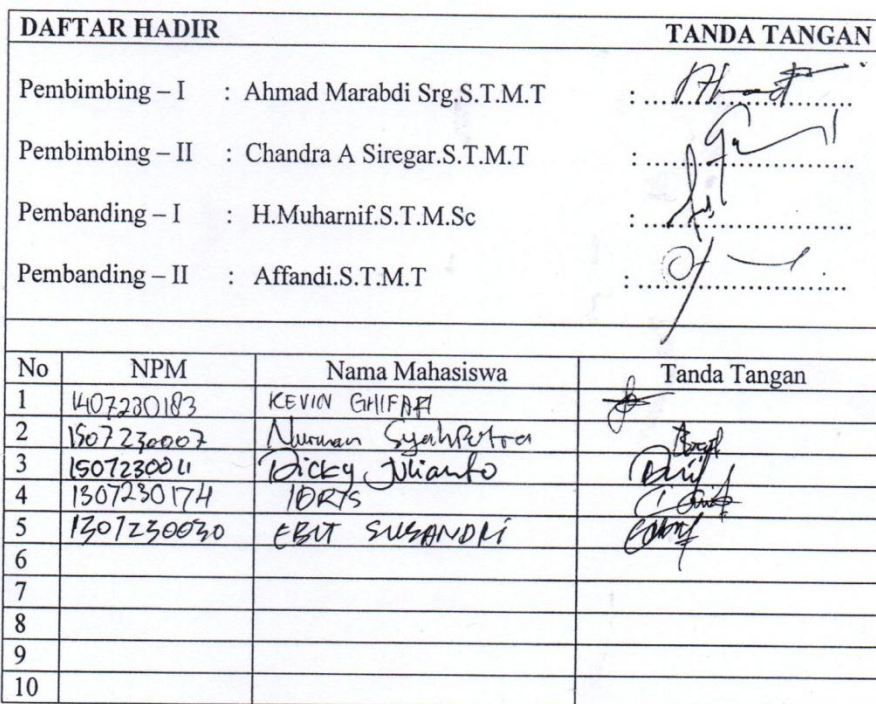 DAFTAR HADIR TANDA TANGAN
Pembimbing – I : Ahmad Marabdi Srg.S.T.M.T : ....................
Pembimbing – II : Chandra A Siregar.S.T.M.T : ....................
Pembanding – I : H.Muharnif.S.T.M.Sc : ....................
Pembanding – II : Affandi.S.T.M.T : ....................
No NPM Nama Mahasiswa Tanda Tangan
1 1407230183 KEVIN GHIFARI
2 1507230007 Nurman Syahputra
3 1507230011 Dicky Julianto
4 1307230174 IDRIS
5 1307230030 EBIT SUSANDRi
6
7
8
9
10